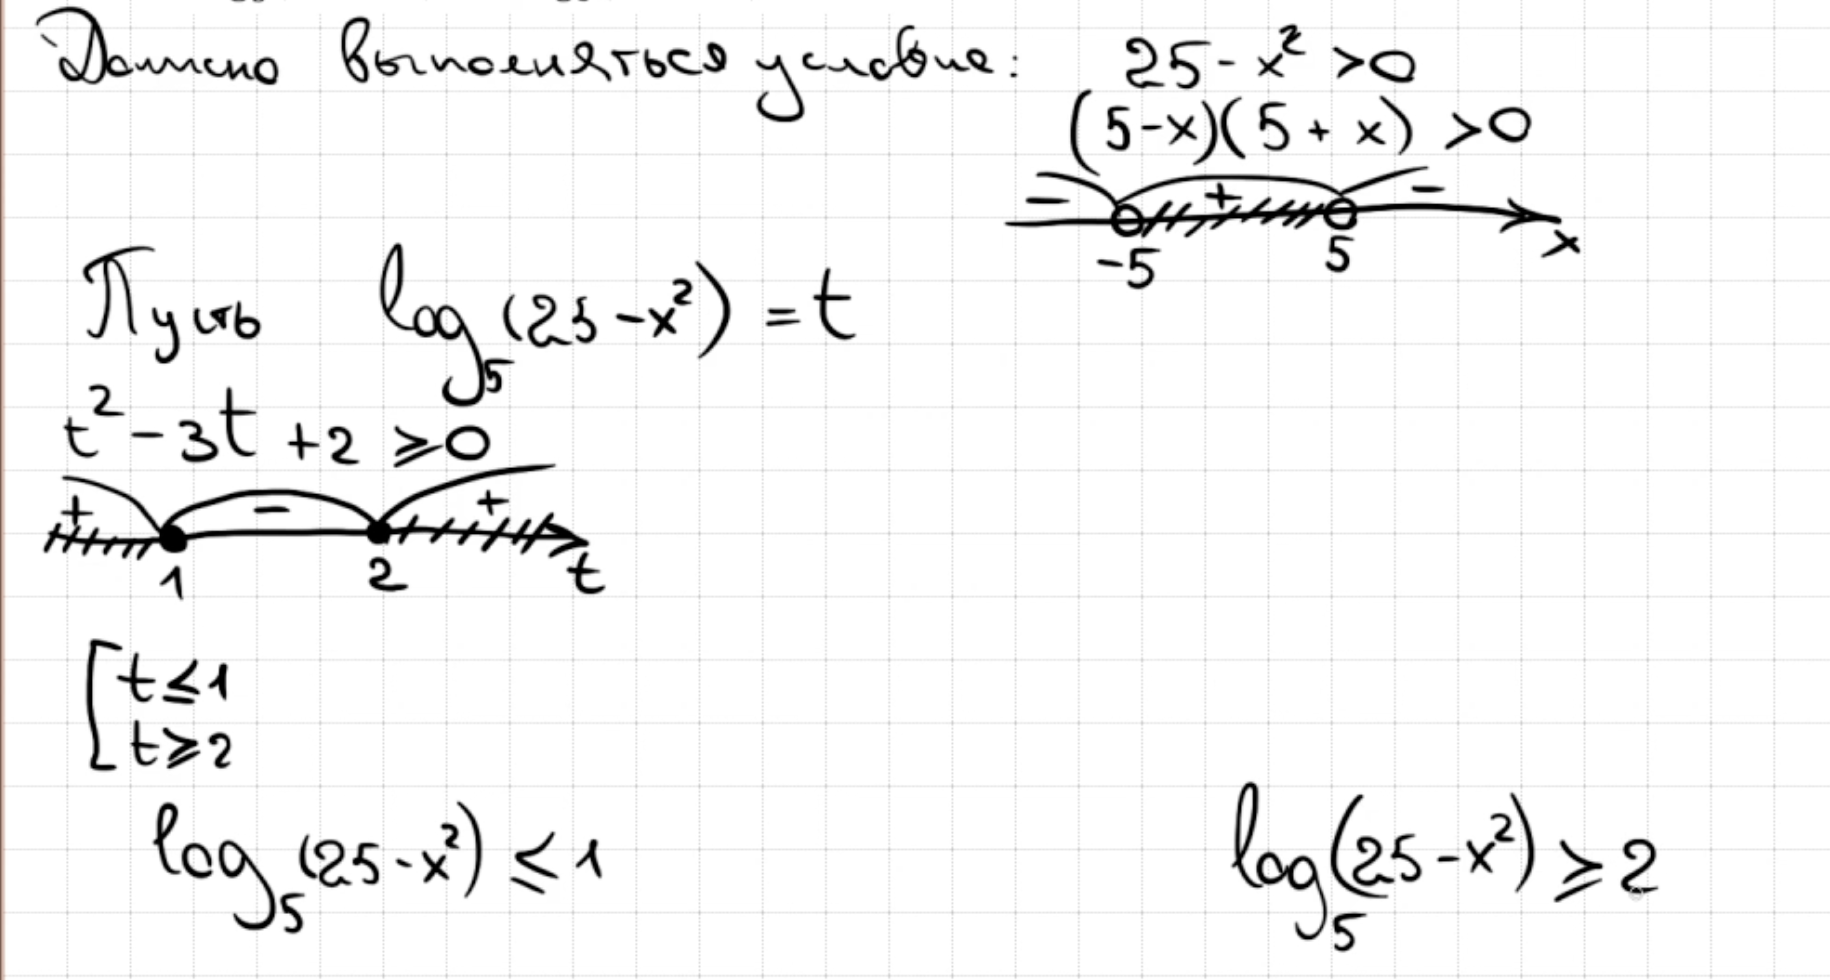 Должно выполняться условие: 25 - x² > 0
(5-x)(5 + x) > 0
- + -
-5 5 x
Пусть log₅(25 - x²) = t
t² - 3t + 2 ⩾ 0
+ - +
1 2 t
[ t ⩽ 1
t ⩾ 2
log₅(25 - x²) ⩽ 1 log₅(25 - x²) ⩾ 2